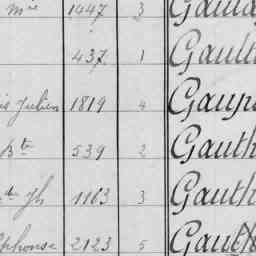 mre 1447 3
437 1 Gault
is Julien 1819 4 Gaup
Bte 539 2 Gauth
Jh 1163 3 Gauth
Alphonse 2123 5 Gauth